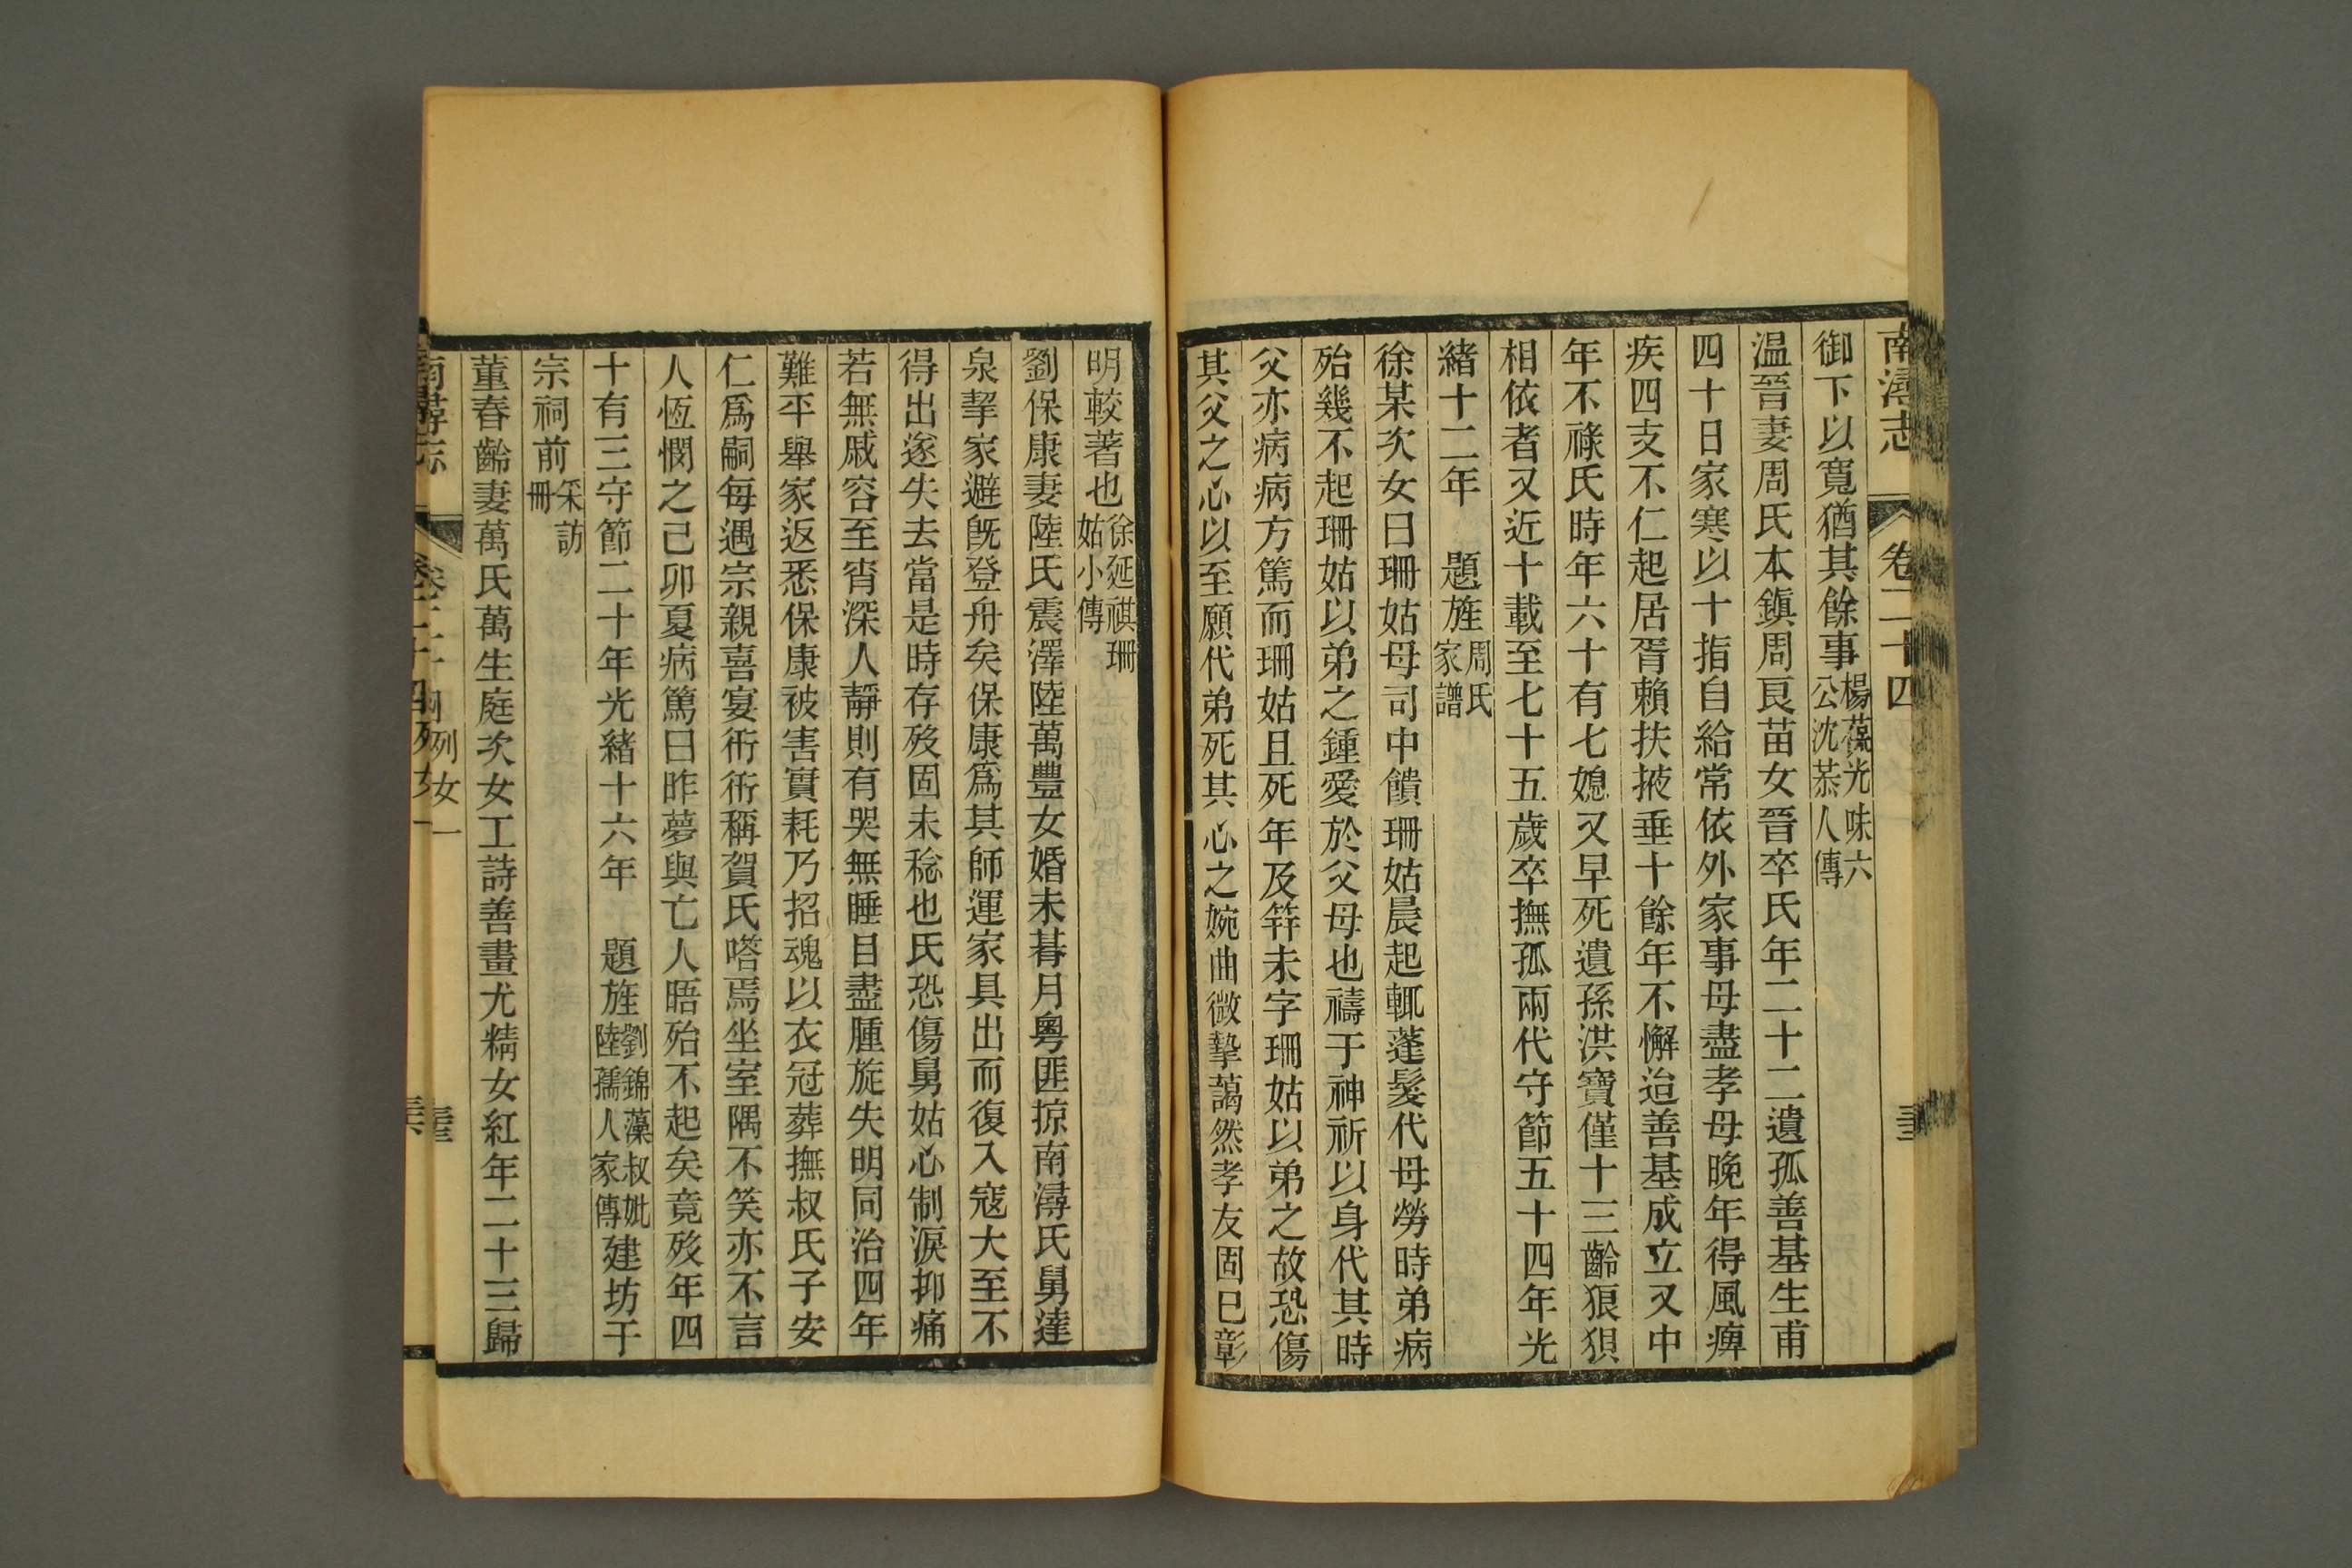 南潯志 卷二十四
御下以寬猶其餘事楊葆光味六公沈恭人傳
温晉妻周氏本鎮周艮苗女晉卒氏年二十二遺孤善基生甫
四十日家寒以十指自給常依外家事母盡孝母晚年得風痺
疾四支不仁起居胥賴扶掖垂十餘年不懈迨善基成立又中
年不祿氏時年六十有七媳又早死遺孫洪寶僅十三齡狼狽
相依者又近十載至七十五歲卒撫孤兩代守節五十四年光
緒十二年　題旌周氏家譜
徐某次女曰珊姑母司中饋珊姑晨起輒蓬髮代母勞時弟病
殆幾不起珊姑以弟之鍾愛於父母也禱于神祈以身代其時
父亦病病方篤而珊姑且死年及笄未字珊姑以弟之故恐傷
其父之心以至願代弟死其心之婉曲微摯藹然孝友固已彰
明較著也徐延祺珊姑小傳
劉保康妻陸氏震澤陸萬豐女婚未朞月粵匪掠南潯氏舅達
泉挈家避旣登舟矣保康爲其師運家具出而復入寇大至不
得出遂失去當是時存歿固未稔也氏恐傷舅姑心制淚抑痛
若無戚容至宵深人靜則有哭無睡目盡腫旋失明同治四年
難平舉家返悉保康被害實耗乃招魂以衣冠葬撫叔氏子安
仁爲嗣每遇宗親喜宴衎衎稱賀氏嗒焉坐室隅不笑亦不言
人恆憫之己卯夏病篤曰昨夢與亡人晤殆不起矣竟歿年四
十有三守節二十年光緒十六年　題旌劉錦藻叔妣陸孺人家傳建坊于
宗祠前采訪冊
董春齡妻萬氏萬生庭次女工詩善畫尤精女紅年二十三歸
南潯志 卷二十四列女一